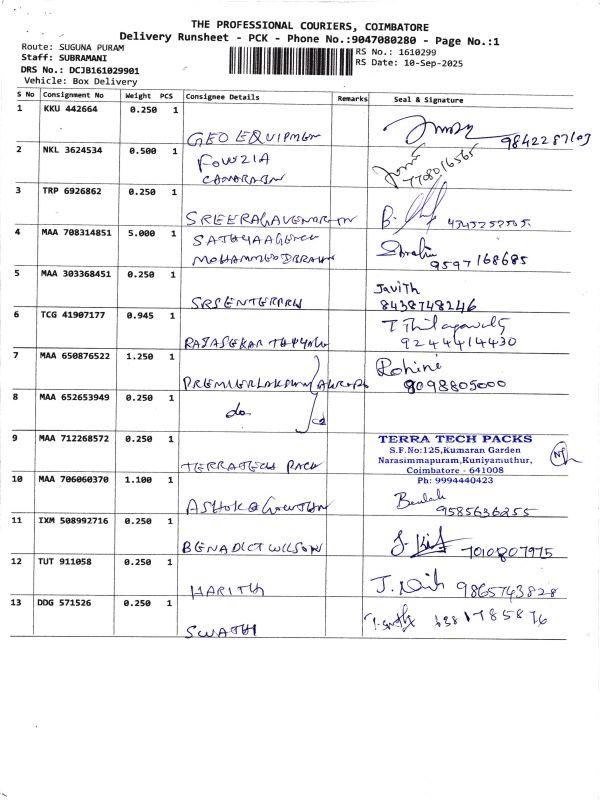 THE PROFESSIONAL COURIERS, COIMBATORE
Delivery Runsheet - PCK - Phone No.:9047080280 - Page No.:1
Route: SUGUNA PURAM
RS No.: 1610299
Staff: SUBRAMANI
RS Date: 10-Sep-2025
DRS No.: DCJB161029901
Vehicle: Box Delivery
S No Consignment No Weight PCS Consignee Details Remarks Seal & Signature
1 KKU 442664 0.250 1
GEO EQUIPMEN 9842287103
2 NKL 3624534 0.500 1 FOWZIA
CANARABN 7708016565
3 TRP 6926862 0.250 1
SREERAGAVENDR
4 MAA 708314851 5.000 1 SATHYAAGENCY
MOHAMMEDIBRAHIM Ibrahim 9597168685
5 MAA 303368451 0.250 1 Javith
SRS ENTERPRIS 8438748246
6 TCG 41907177 0.945 1 T Thilagavathy
RAJASEKAR 9244414430
7 MAA 650876522 1.250 1 Rohini
PREMIER 8098805000
8 MAA 652653949 0.250 1 do
9 MAA 712268572 0.250 1 TERRA TECH PACKS
S.F.No:125,Kumaran Garden
Narasimmapuram,Kuniyamuthur,
Coimbatore - 641008
TERRATECH PACK Ph: 9994440423
10 MAA 706060370 1.100 1 Beulah
ASHOK 9585636255
11 IXM 508992716 0.250 1
BENADICT WILSON 7010807975
12 TUT 911058 0.250 1
HARITH 9865743828
13 DDG 571526 0.250 1
SWATHI